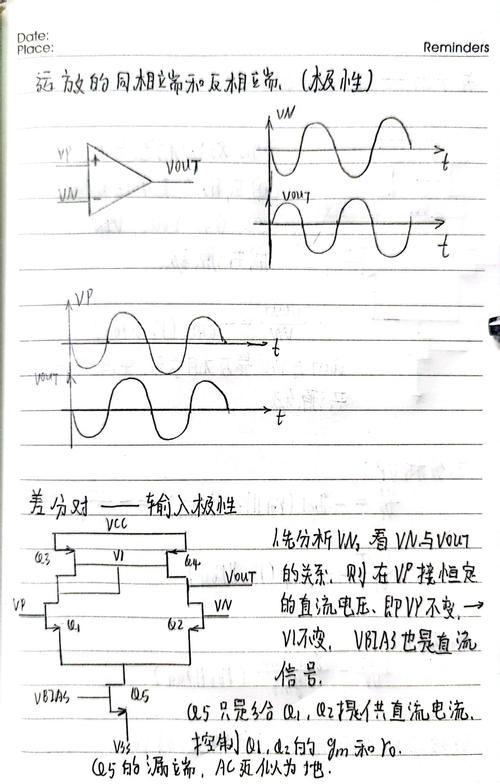 Date:
Place:
Reminders
运放的同相端和反相端.（极性）
VN
t
VP
VN
VOUT
VOUT
t
VP
t
VOUT
t
差分对 —— 输入极性
VCC
Q3
V1
Q4
VOUT
VP
Q1
Q2
VN
VBIAS
Q5
VSS
先分析VN, 看VN与VOUT
的关系. 则在VP接恒定
的直流电压、即VP不变, →
V1不变. VBIAS也是直流
信号.
Q5只是给Q1, Q2提供直流电流,
控制Q1, Q2的gm和ro.
Q5的漏端, AC近似为地.